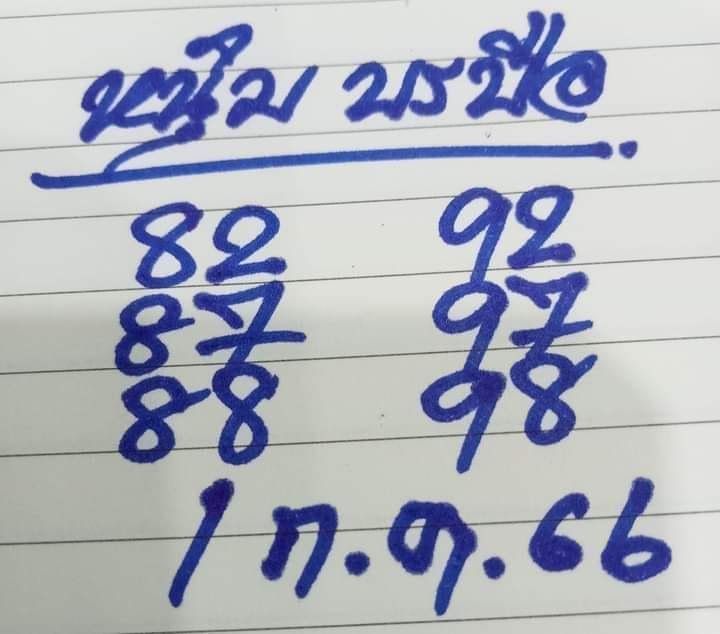 หนุ่ม บรบือ
82 92
87 97
88 98
1 ก.ค. 66